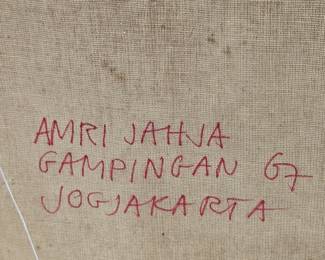 AMRI JAHJA
GAMPINGAN 67
JOGJAKARTA